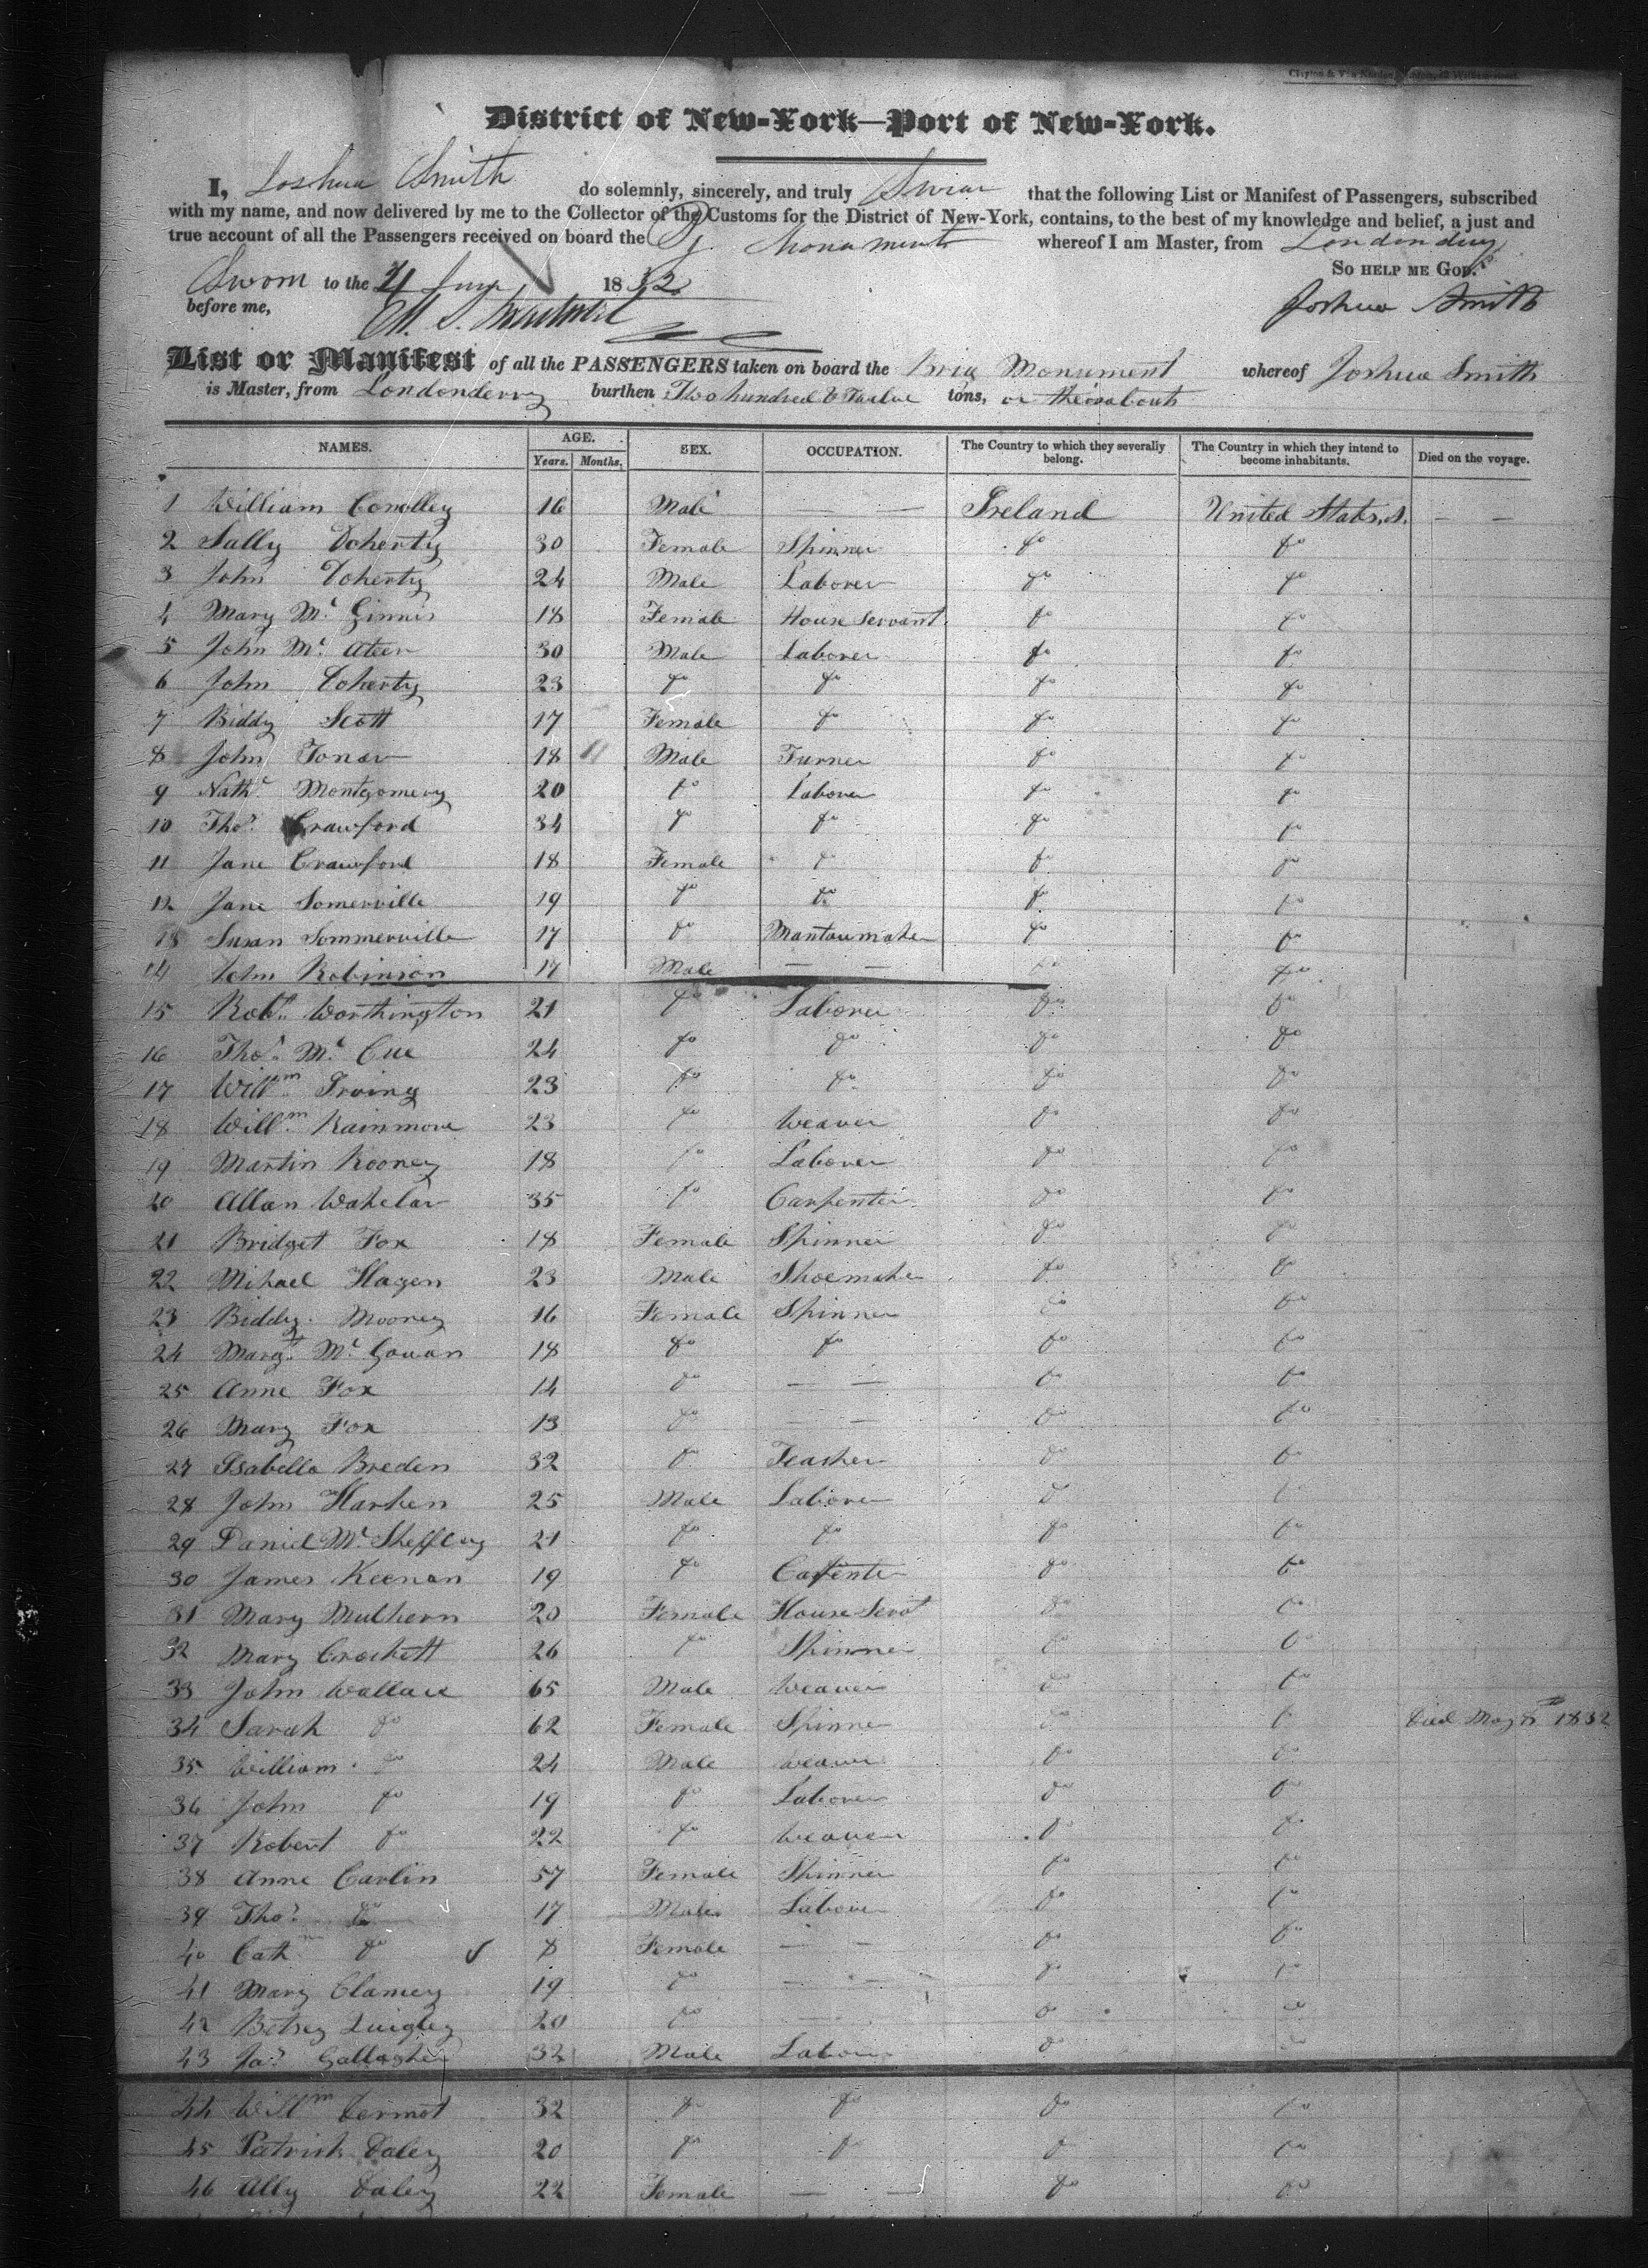 District of New-York—Port of New-York.
I, Joshua Smith do solemnly, sincerely, and truly Swear that the following List or Manifest of Passengers, subscribed
with my name, and now delivered by me to the Collector of the Customs for the District of New-York, contains, to the best of my knowledge and belief, a just and
true account of all the Passengers received on board the Bg Monument whereof I am Master, from Londonderry
So help me God.
Sworn to the 4 June 1832
before me,
Joshua Smith
List or Manifest of all the PASSENGERS taken on board the Brig Monument whereof Joshua Smith
is Master, from Londonderry burthen Two hundred & Twelve tons, or thereabouts
NAMES. AGE. SEX. OCCUPATION. The Country to which they severally belong. The Country in which they intend to become inhabitants. Died on the voyage.
Years. Months.
1 William Conolley 16 Male — — Ireland United States — —
2 Sally Doherty 30 Female Spinner do do
3 John Doherty 24 Male Laborer do do
4 Mary Mc Ginnis 18 Female House Servant do do
5 John Mc Ateer 30 Male Laborer do do
6 John Doherty 23 do do do do
7 Biddy Scott 17 Female do do do
8 John Tonar 18 Male Turner do do
9 Nathl Montgomery 20 do Laborer do do
10 Thos Crawford 34 do do do do
11 Jane Crawford 18 Female do do do
12 Jane Somerville 19 do do do do
13 Susan Sommerville 17 do Mantaumaker do do
14 John Robinson 17 Male — — do do
15 Robt Worthington 21 do Laborer do do
16 Thos Mc Cue 24 do do do do
17 Willm Irving 23 do do do do
18 Willm Rainmore 23 do Weaver do do
19 Martin Rooney 18 do Laborer do do
20 Allan Wakelar 35 do Carpenter do do
21 Bridget Fox 18 Female Spinner do do
22 Mihael Hagen 23 Male Shoemaker do do
23 Biddy Mooney 16 Female Spinner do do
24 Margt Mc Gowan 18 do do do do
25 Anne Fox 14 do — — do do
26 Mary Fox 13 do — — do do
27 Isabella Breden 32 do Teacher do do
28 John Harken 25 Male Laborer do do
29 Daniel Mc Sheffley 21 do do do do
30 James Keenan 19 do Carpenter do do
31 Mary Mulhern 20 Female House Servt do do
32 Mary Crockett 26 do Spinner do do
33 John Wallace 65 Male Weaver do do
34 Sarah do 62 Female Spinner do do Died May 1832
35 William do 24 Male Weaver do do
36 John do 19 do Laborer do do
37 Robert do 22 do Weaver do do
38 Anne Carlin 57 Female Spinner do do
39 Thos do 17 Male Laborer do do
40 Cath do 8 Female — — do do
41 Mary Clamey 19 do — — do do
42 Betsey Quigley 20 do — — do do
43 Jas Gallagher 32 Male Laborer do do
44 Willm Dermot 32 do do do do
45 Patrick Daley 20 do do do do
46 Ally Daley 22 Female — — do do